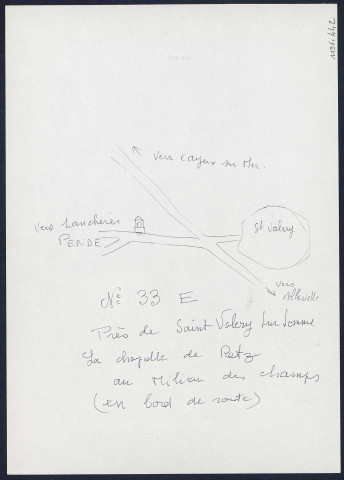 vers Cayeux sur Mer.
St Valery
vers Lanchères
PENDÉ
vers
N° 33 E
Près de Saint Valery sur Somme
La chapelle de Retz
au Milieu des champs
(en bord de route)